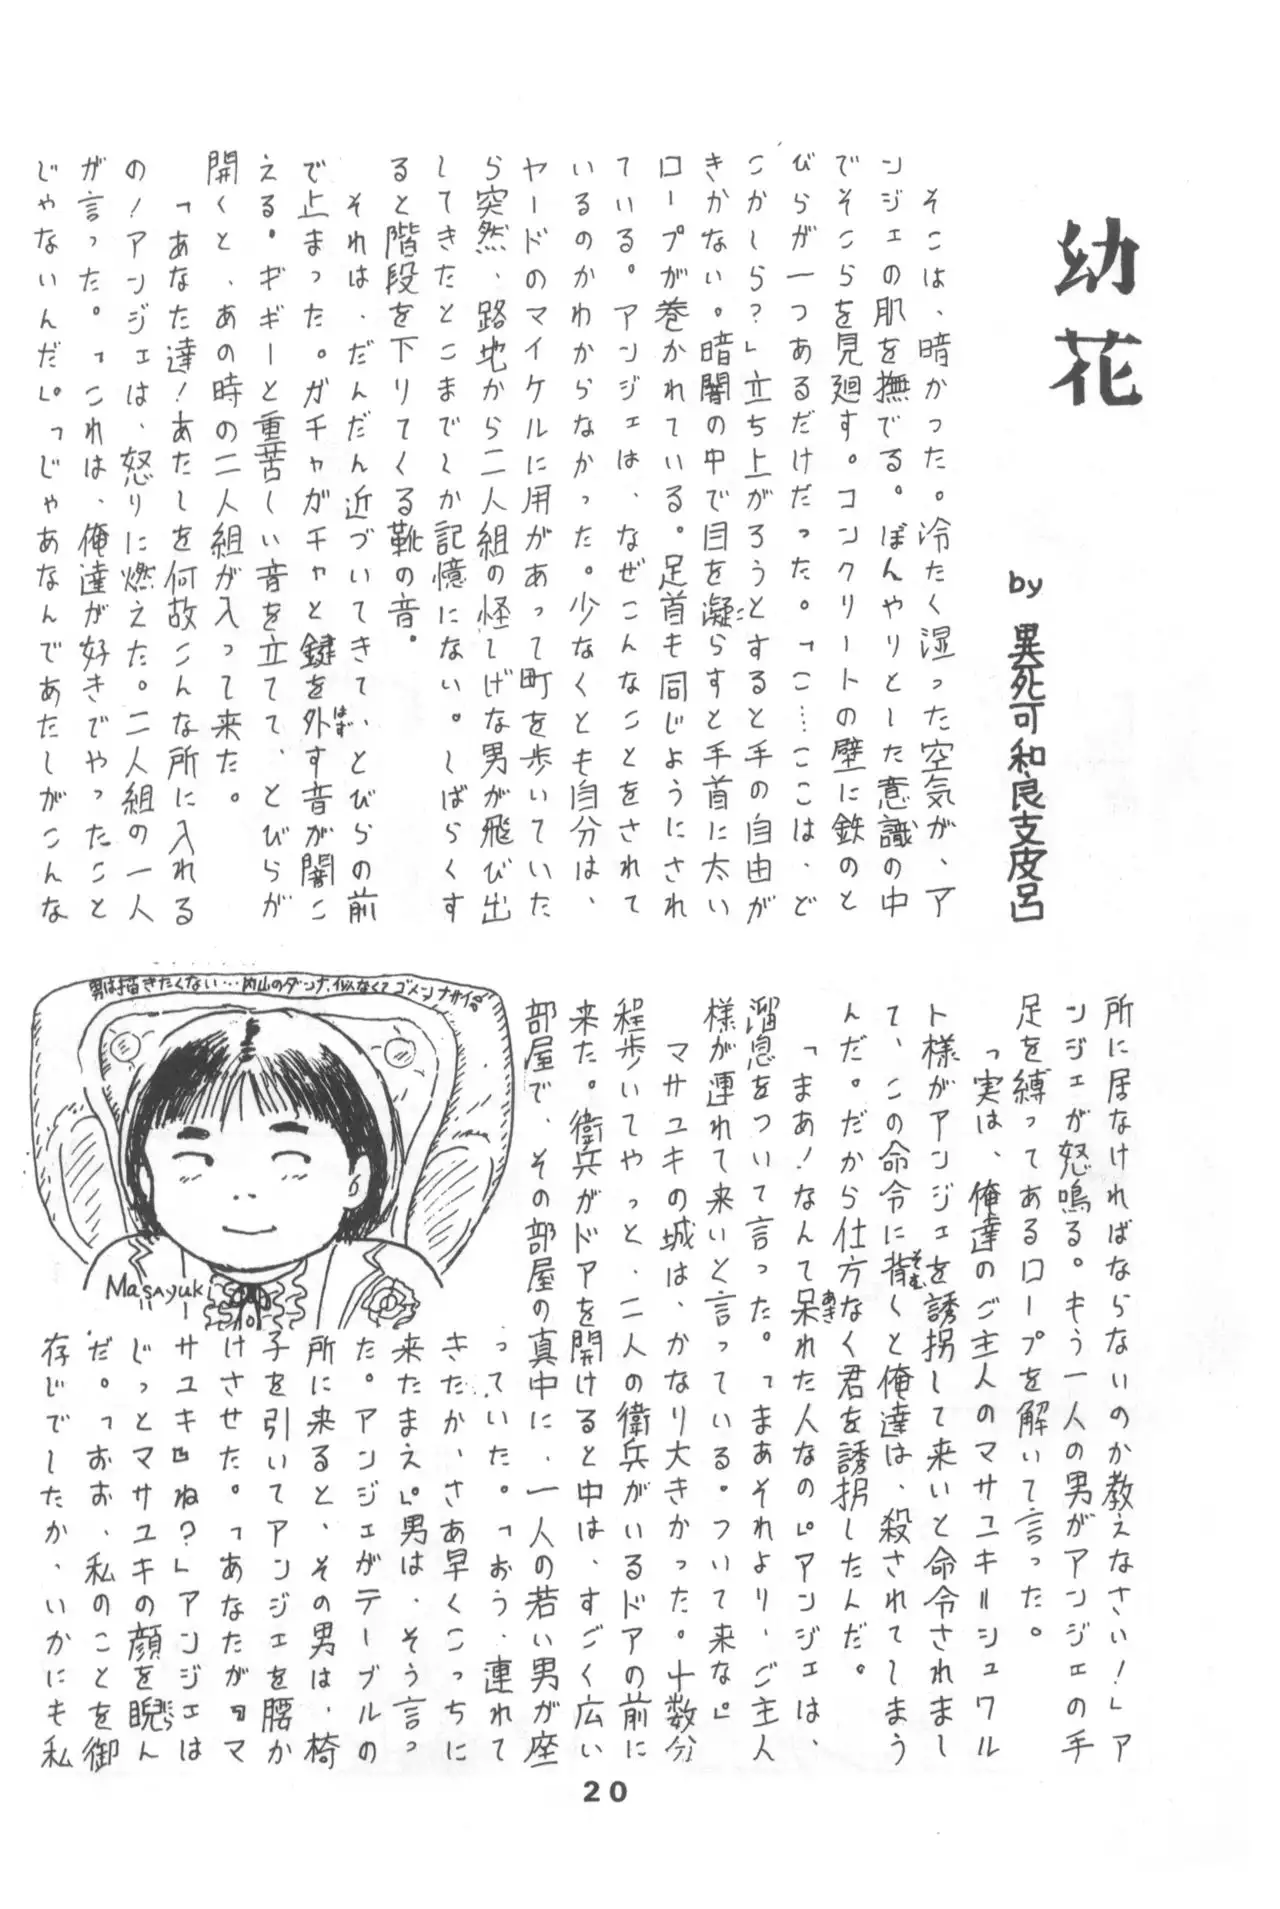 幼花
by 異死可和良支皮呂
そこは、暗かった。冷たく湿った空気が、ア
ンジェの肌を撫でる。ぼんやりとした意識の中
でそこらを見廻す。コンクリートの壁に鉄のと
びらが一つあるだけだった。「こ…ここは、ど
こかしら?」立ち上がろうとすると手の自由が
きかない。暗闇の中で目を凝らすと手首に太い
ロープが巻かれている。足首も同じようにされ
ている。アンジェは、なぜこんなことをされて
いるのかわからなかった。少なくとも自分は、
ヤードのマイケルに用があって町を歩いていた
ら突然、路地から二人組の怪しげな男が飛び出
してきたとこまでしか記憶にない。しばらくす
ると階段を下りてくる靴の音。
それは、だんだん近づいてきて、とびらの前
で止まった。ガチャガチャと鍵を外す音が聞こ
える。ギギーと重苦しい音を立てて、とびらが
開くと、あの時の二人組が入って来た。
「あなた達!あたしを何故こんな所に入れる
の!アンジェは、怒りに燃えた。二人組の一人
が言った。「これは、俺達が好きでやったこと
じゃないんだ。」「じゃあなんであたしがこんな
所に居なければならないのか教えなさい!」ア
ンジェが怒鳴る。もう一人の男がアンジェの手
足を縛ってあるロープを解いて言った。
「実は、俺達のご主人のマサユキ=シュワル
ト様がアンジェを誘拐して来いと命令されまし
て、この命令に背くと俺達は、殺されてしまう
んだ。だから仕方なく君を誘拐したんだ。
「まあ!なんて呆れた人なの。」アンジェは、
溜息をついて言った。「まあそれより、ご主人
様が連れて来いと言っている。ついて来な。」
マサユキの城は、かなり大きかった。十数分
程歩いてやっと、二人の衛兵がいるドアの前に
来た。衛兵がドアを開けると中は、すごく広い
部屋で、その部屋の真中に、一人の若い男が座
っていた。「おう、連れて
きたか、さあ早くこっちに
来たまえ。」男は、そう言っ
た。アンジェがテーブルの
所に来ると、その男は、椅
子を引いてアンジェを腰か
けさせた。「あなたが『マ
サユキ』ね?」アンジェは
じっとマサユキの顔を睨ん
だ。「おお、私のことを御
存じでしたか、いかにも私
男は描きたくない…内山のダンナ、似なくてゴメンナサイ
Masayuki
20